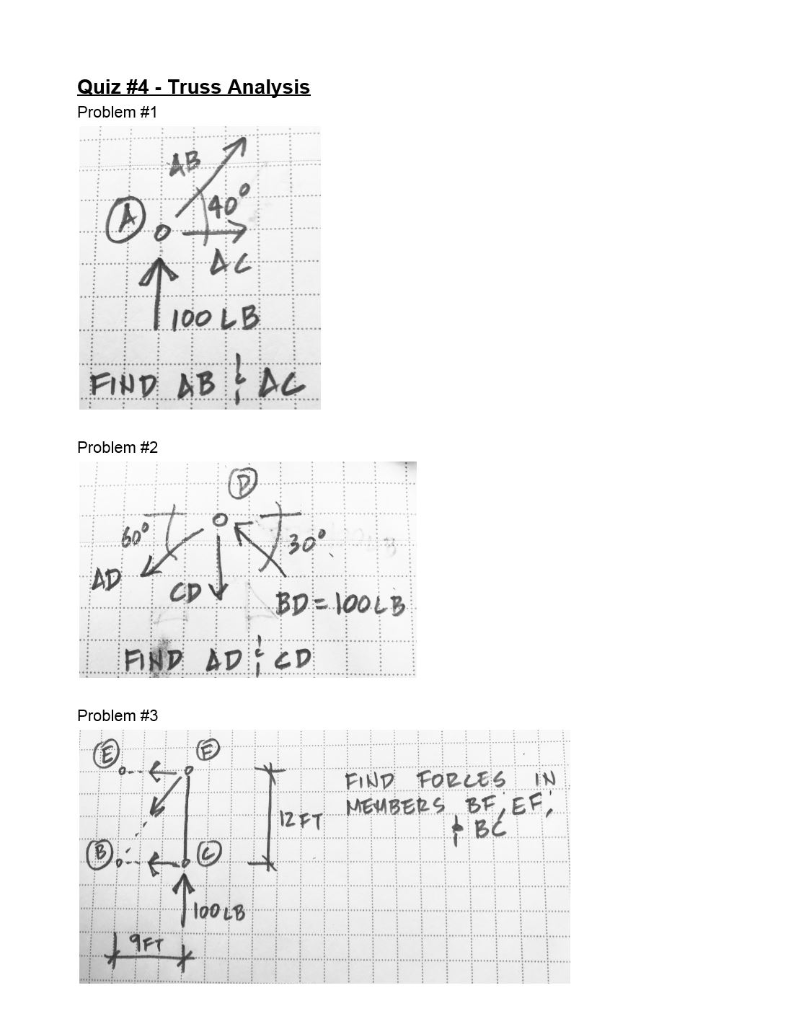 Quiz #4 - Truss Analysis
Problem #1
AB
40°
A
AC
100 LB
FIND AB & AC
Problem #2
D
60°
30°
AD
CD
BD = 100 LB
FIND AD & CD
Problem #3
E
F
FIND FORCES IN
MEMBERS BF, EF,
& BC
12 FT
B
C
100 LB
9 FT